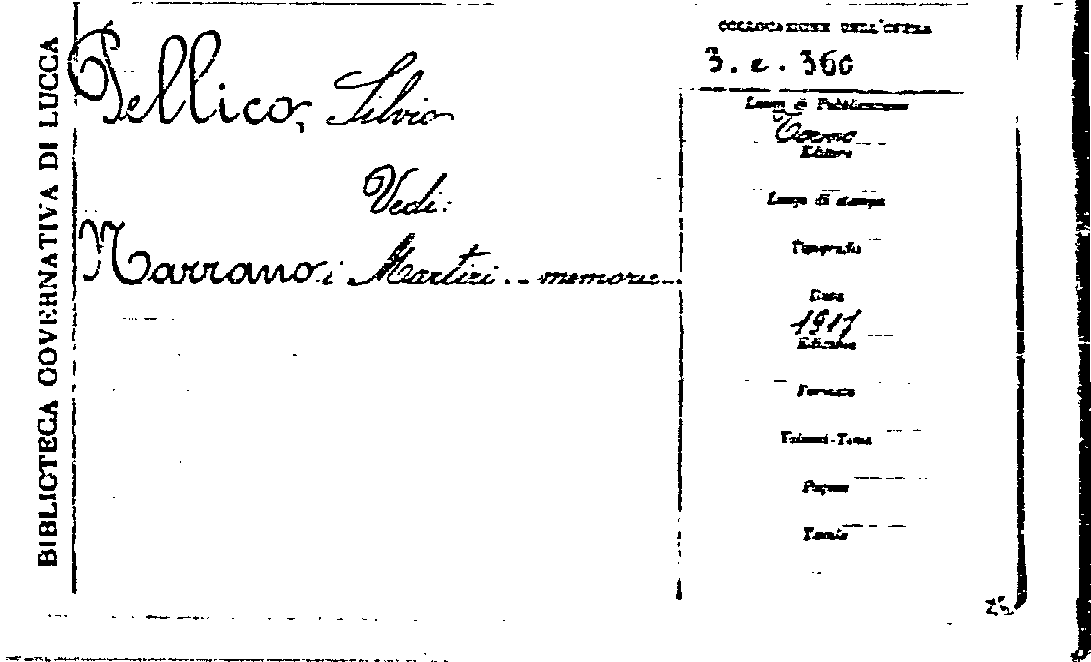 BIBLIOTECA GOVERNATIVA DI LUCCA
Pellico, Silvio
Vedi:
Narrano i Martiri .. memorie..
COLLOCAZIONE DELL'OPERA
3. e. 360
Luogo di Pubblicazione
Editore
Luogo di stampa
Tipografia
Data
1917
Edizione
Formato
Volumi-Tomi
Pagine
Tavole